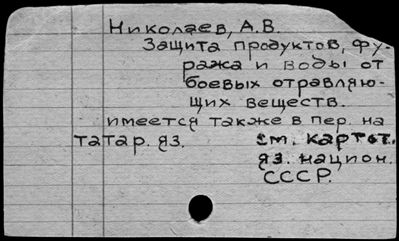 Николаев, А.В.
Защита продуктов, фу-
ража и воды от
боевых отравляю-
щих веществ.
имеется также в пер. на
татар. яз. см. картот.
яз. национ.
СССР.